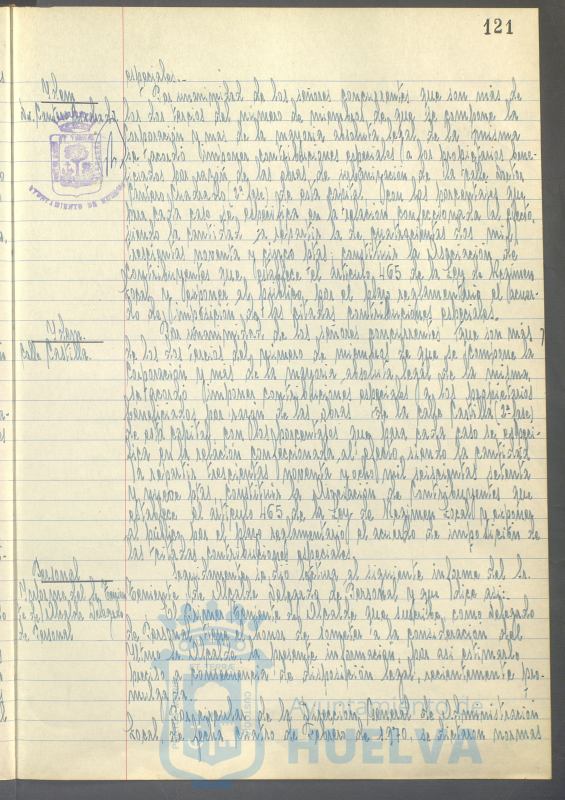 121
especiales.-
Idem
Por unanimidad de los señores concurrentes que son más de
los dos tercios del número de miembros de que se compone la
Corporación y más de la mayoría absoluta legal de la misma
se acordó imponer contribuciones especiales a los propietarios bene-
ficiados por razón de las obras de urbanización de la calle
2ª fase) de esta capital, con los porcentajes que
para cada caso se especifica en la relación confeccionada al efecto,
siendo la cantidad a repartir la de cuatrocientas dos mil
trescientas noventa y cinco ptas; constituir la Asociación de
Contribuyentes que establece el artículo 465 de la Ley de Régimen
Local y exponer al público por el plazo reglamentario el acuer-
do de imposición de las citadas contribuciones especiales.
Idem.
Calle Castilla.
Por unanimidad de los señores concurrentes que son más
de los dos tercios del número de miembros de que se compone la
Corporación y más de la mayoría absoluta legal de la misma,
se acordó imponer contribuciones especiales a los propietarios
beneficiados por razón de las obras de la calle Castilla (2ª fase)
de esta capital, con los porcentajes que para cada caso se especi-
fica en la relación confeccionada al efecto, siendo la cantidad
a repartir trescientas noventa y ocho mil seiscientas setenta
y nueve ptas, constituir la Asociación de Contribuyentes que
establece el artículo 465 de la Ley de Régimen Local y exponer
al público por el plazo reglamentario el acuerdo de imposición de
las citadas contribuciones especiales.
Personal
Informe del Sr. Tenien-
te de Alcalde Delegado
de Personal
Seguidamente se dio lectura al siguiente informe del Sr.
Teniente de Alcalde Delegado de Personal y que dice así:
El Iltmo. Teniente de Alcalde que suscribe, como delegado
de Personal, tiene el honor de someter a la consideración del
Iltmo Sr. Alcalde la presente información, por así estimarlo
preciso a consecuencia de disposición legal, recientemente pro-
mulgada.
Por Circular de la Dirección General de Administración
Local de fecha cuatro de Febrero de 1970 se dictaron normas
AYUNTAMIENTO DE HUELVA
Ayuntamiento de
HUELVA